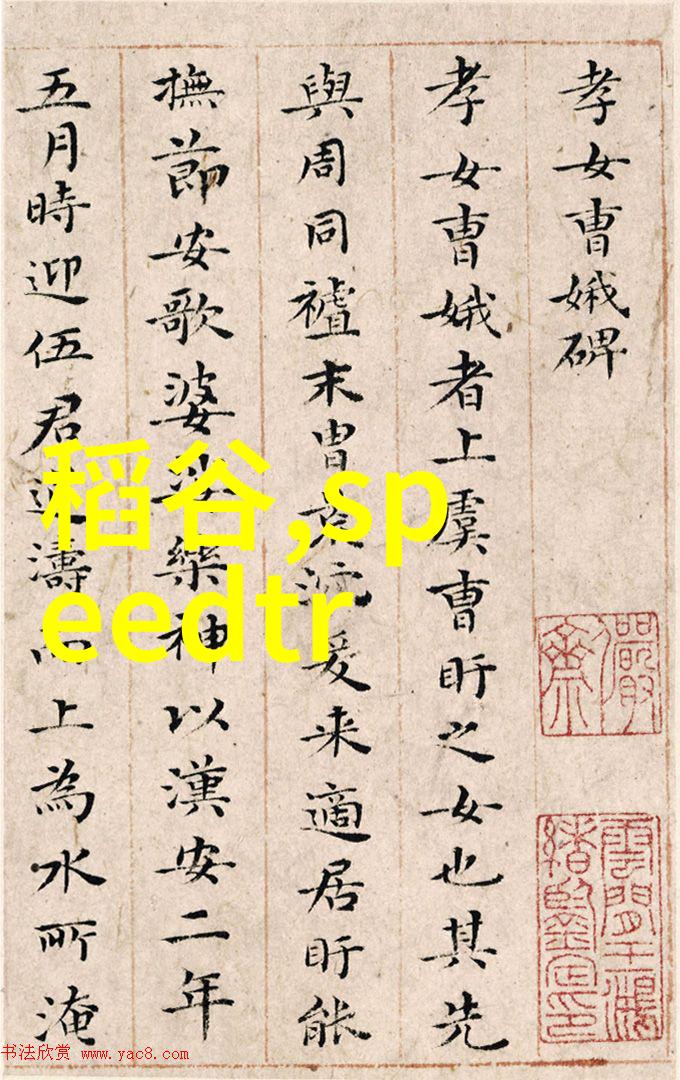 孝女曹娥碑
孝女曹娥者上虞曹盱之女也其先
與周同末胄沉爰来適居盱能
撫節安歌婆娑樂神以漢安二年
五月時迎伍君逆濤而上為水所淹
稻谷,sp
eedtr
儼齋
雲間王鴻
緒鑒定印
书法欣赏 www.yac8.com